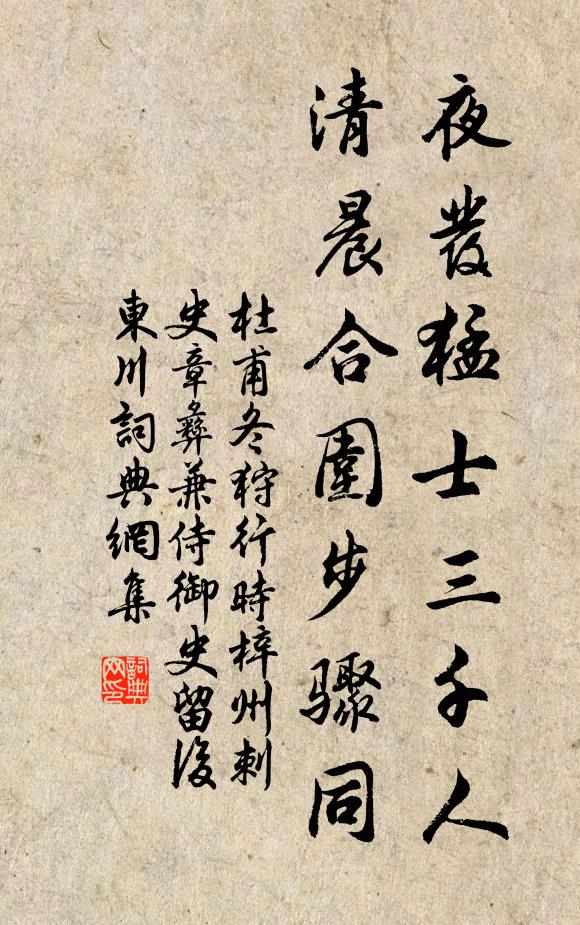 夜發猛士三千人
清晨合圍步驟同
杜甫冬狩行時梓州刺
史章彝兼侍御史留後
東川詞典網集
詞典网印